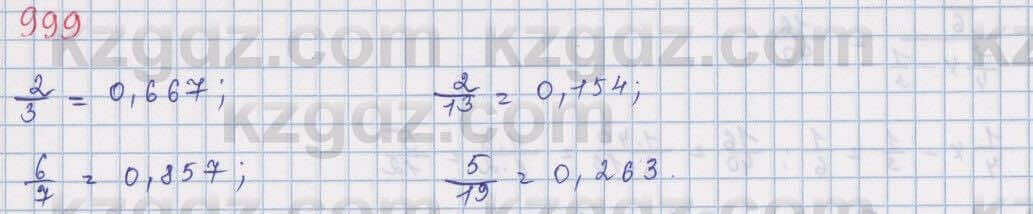 999
kzgdz.com kzgdz.com kz
2/3 = 0,667; 2/13 = 0,154;
kzgdz.com
6/7 = 0,857; 5/19 = 0,263.